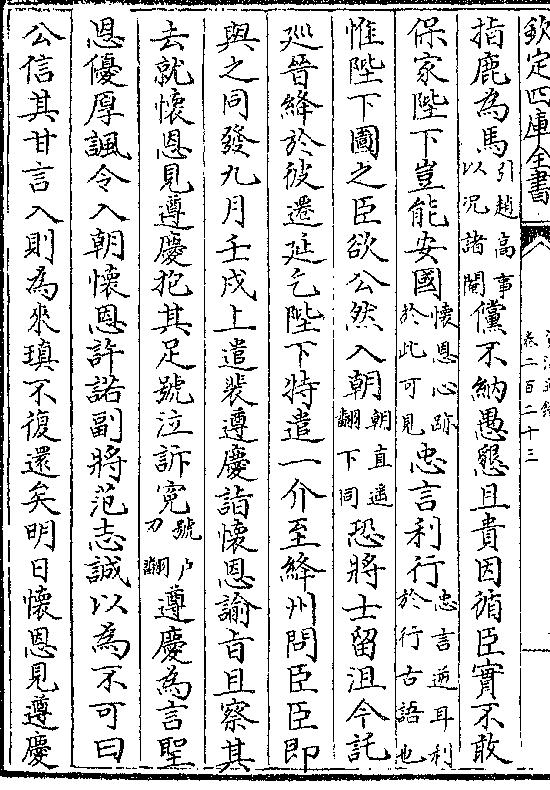 欽定四庫全書
卷二百二十三
指鹿為馬引趙高事以况諸閹儻不納愚懇且貴因循臣實不敢
保家陛下豈能安國懷恩心跡於此可見忠言利行忠言逆耳利於行古語也
惟陛下圖之臣欲公然入朝朝直遥翻下同恐將士留沮今託
廵晉絳於彼遷延乞陛下特遣一介至絳州問臣臣即
與之同發九月壬戌上遣裴遵慶詣懷恩諭旨且察其
去就懷恩見遵慶抱其足號泣訴寃號戶刀翻遵慶為言聖
恩優厚諷令入朝懷恩許諾副將范志誠以為不可曰
公信其甘言入則為來瑱不復還矣明日懷恩見遵慶